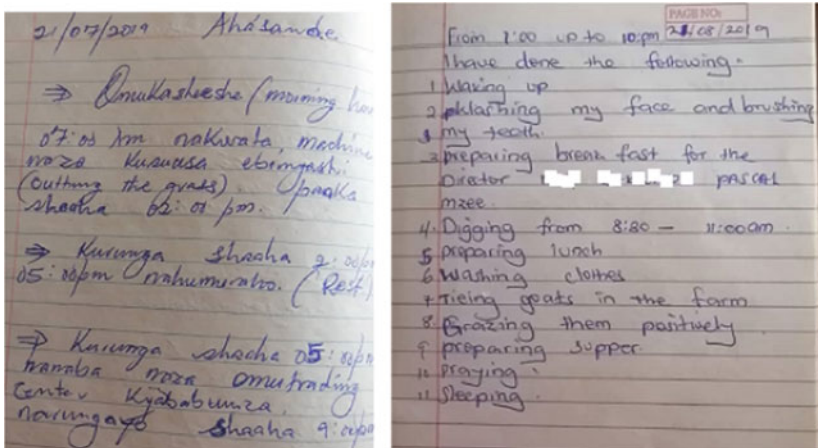 21/07/2019 Ahasande
⇒ Omukasheeshe (morning
07:00 Am nakwata machine
naza kusuusa ebinyashi.
(Cutting the grass). paaka
shaaha 02:00 pm.
⇒ Kurunga shaaha 2:00pm
05:00pm nahumuraho. (Rest.)
⇒ Kurunga shaaha 05:00pm
naza omutrading
Center Kyababunza.
shaaha 9:00pm
PAGE NO:
From 1:00 up to 10:pm 21/08/2019
I have done the following.
1 Waking up
2 my face and brushing
my teeth.
3 preparing break fast for the
Director PASCAL
mzee.
4. Digging from 8:30 - 11:00am.
5 preparing lunch
6 Washing clothes
7 Tieing goats in the farm
8 Grazing them positively
9 preparing supper.
10 praying.
11 Sleeping.